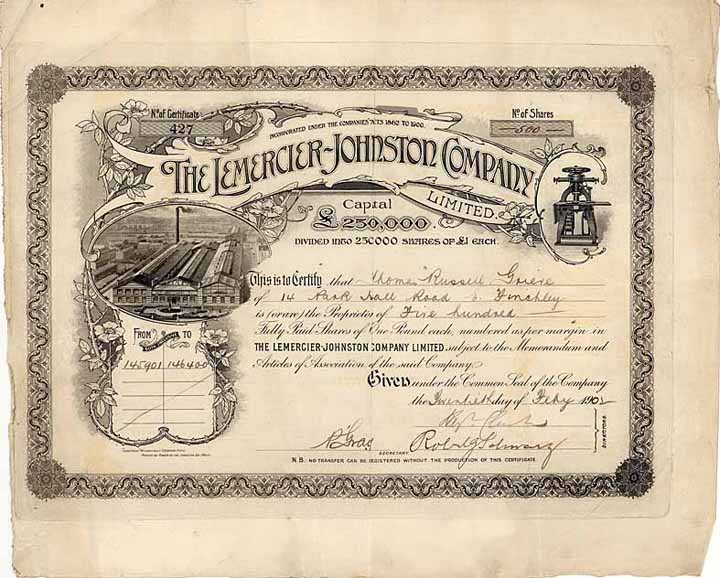 No. of Certificate
427
No. of Shares
500
INCORPORATED UNDER THE COMPANIES' ACTS 1862 TO 1900.
THE LEMERCIER-JOHNSTON COMPANY
LIMITED.
Capital
£250,000.
DIVIDED INTO 250000 SHARES OF £1 EACH.
This is to Certify that Thomas Russell Grieve
of 14 Park Hall Road E. Finchley
is (or are) the Proprietor of Five hundred
Fully Paid Shares of One Pound each, numbered as per margin in
THE LEMERCIER-JOHNSTON COMPANY LIMITED, subject to the Memorandum and
Articles of Association of the said Company.
Given under the Common Seal of the Company
the Twentieth day of Feby 1902
FROM TO
145901 146400
DIRECTORS.
SECRETARY.
N.B. NO TRANSFER CAN BE REGISTERED WITHOUT THE PRODUCTION OF THIS CERTIFICATE.